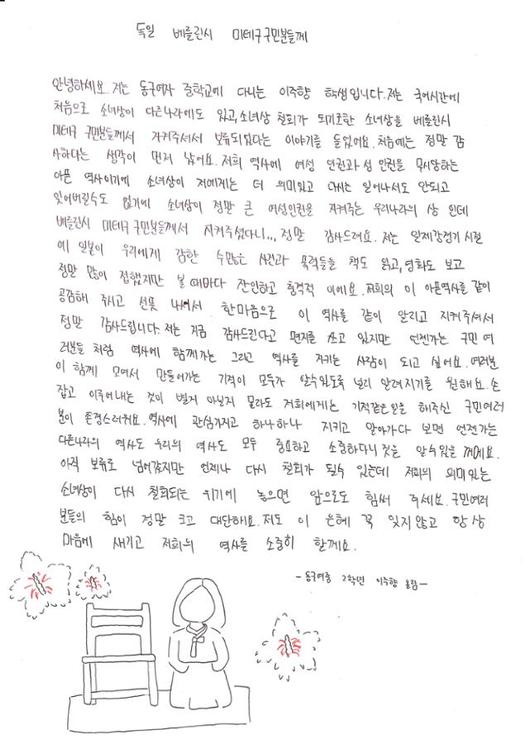 독일 베를린시 미테구 구민분들께
안녕하세요. 저는 동구여자 중학교에 다니는 이주향 학생입니다. 저는 국어시간에
처음으로 소녀상이 다른나라에도 있고, 소녀상 철회가 되기도한 소녀상을 베를린시
미테구 구민들께서 지켜주셔서 보류되었다는 이야기를 들었어요. 처음에는 정말 감
사하다는 생각이 먼저 났어요. 저희 역사에 여성 인권과 성 인권을 무시당하는
아픈 역사이기에 소녀상이 저에게는 더 의미있고 다시는 일어나서도 안되고
잊어버릴수도 없기에 소녀상이 정말 큰 여성인권을 지켜주는 우리나라의 상 인데
베를린시 미테구 구민분들께서 지켜주셨다니... 정말 감사드려요. 저는 일제강점기 시절
에 일본이 우리에게 가한 수많은 사건과 폭력들을 책도 읽고, 영화도 보고
정말 많이 접했지만 볼 때마다 잔인하고 충격적 이에요. 저희의 이 아픈역사를 같이
공감해 주시고 선뜻 나서서 한마음으로 이 역사를 같이 알리고 지켜주셔서
정말 감사드립니다. 저는 지금 감사드린다고 편지를 쓰고 있지만 언젠가는 구민 여
러분들 처럼 역사에 함께가는 그리고 역사를 지키는 사람이 되고 싶어요. 여러분
이 함께 모여서 만들어가는 기적이 모두가 알수있도록 널리 알려지기를 원해요. 손
잡고 이루어내는 것이 별거 아닐지 몰라도 저희에게는 기적같은일을 해주신 구민여러
분이 존경스러워요. 역사에 관심가지고 하나하나 지키고 알아가다 보면 언젠가는
다른나라의 역사도 우리의 역사도 모두 중요하고 소중하다닌것을 알수있을 꺼에요.
아직 보류로 넘어갔지만 언제나 다시 철회가 될수 있는데 저희의 의미있는
소녀상이 다시 철회되는 위기에 놓으면 앞으로도 힘써 주세요. 구민여러
분들의 힘이 정말 크고 대단해요. 저도 이 은혜 꼭 잊지않고 항상
마음에 새기고 저희의 역사를 소중히 할께요.
- 동구여중 2학년 이주향 올림 -